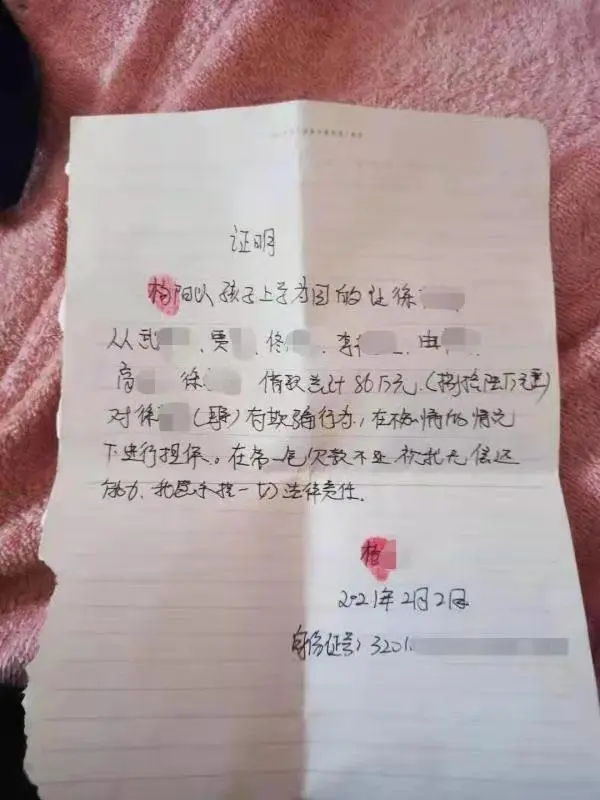 证明
杨阳以孩子上学为目的让徐
从武、贾、佟、李、曲
高 徐 借款总计86万元.(捌拾陆万元整)
对徐 ( ) 有欺骗行为,在不知情的情况
下进行担保。在第一笔欠款不还 我无偿还
能力,我愿承担一切法律责任.
杨
2021年2月2日
身份证号:3201